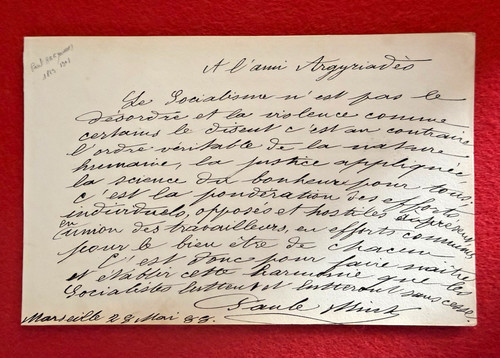 A l'ami Argyriadès
Le Socialisme n'est pas le
désordre et la violence comme
certains le disent c'est au contraire
l'ordre véritable de la nature
humaine, la justice appliquée
la science du bonheur pour tous.
c'est la pondération des efforts
individuels, opposés et hostiles
en union des travailleurs, en efforts communs
pour le bien être de chacun
C'est donc pour faire naître
et établir cette harmonie que les
Socialistes luttent et lutteront sans cesse
Paule Mink
Marseille 28 Mai 88.